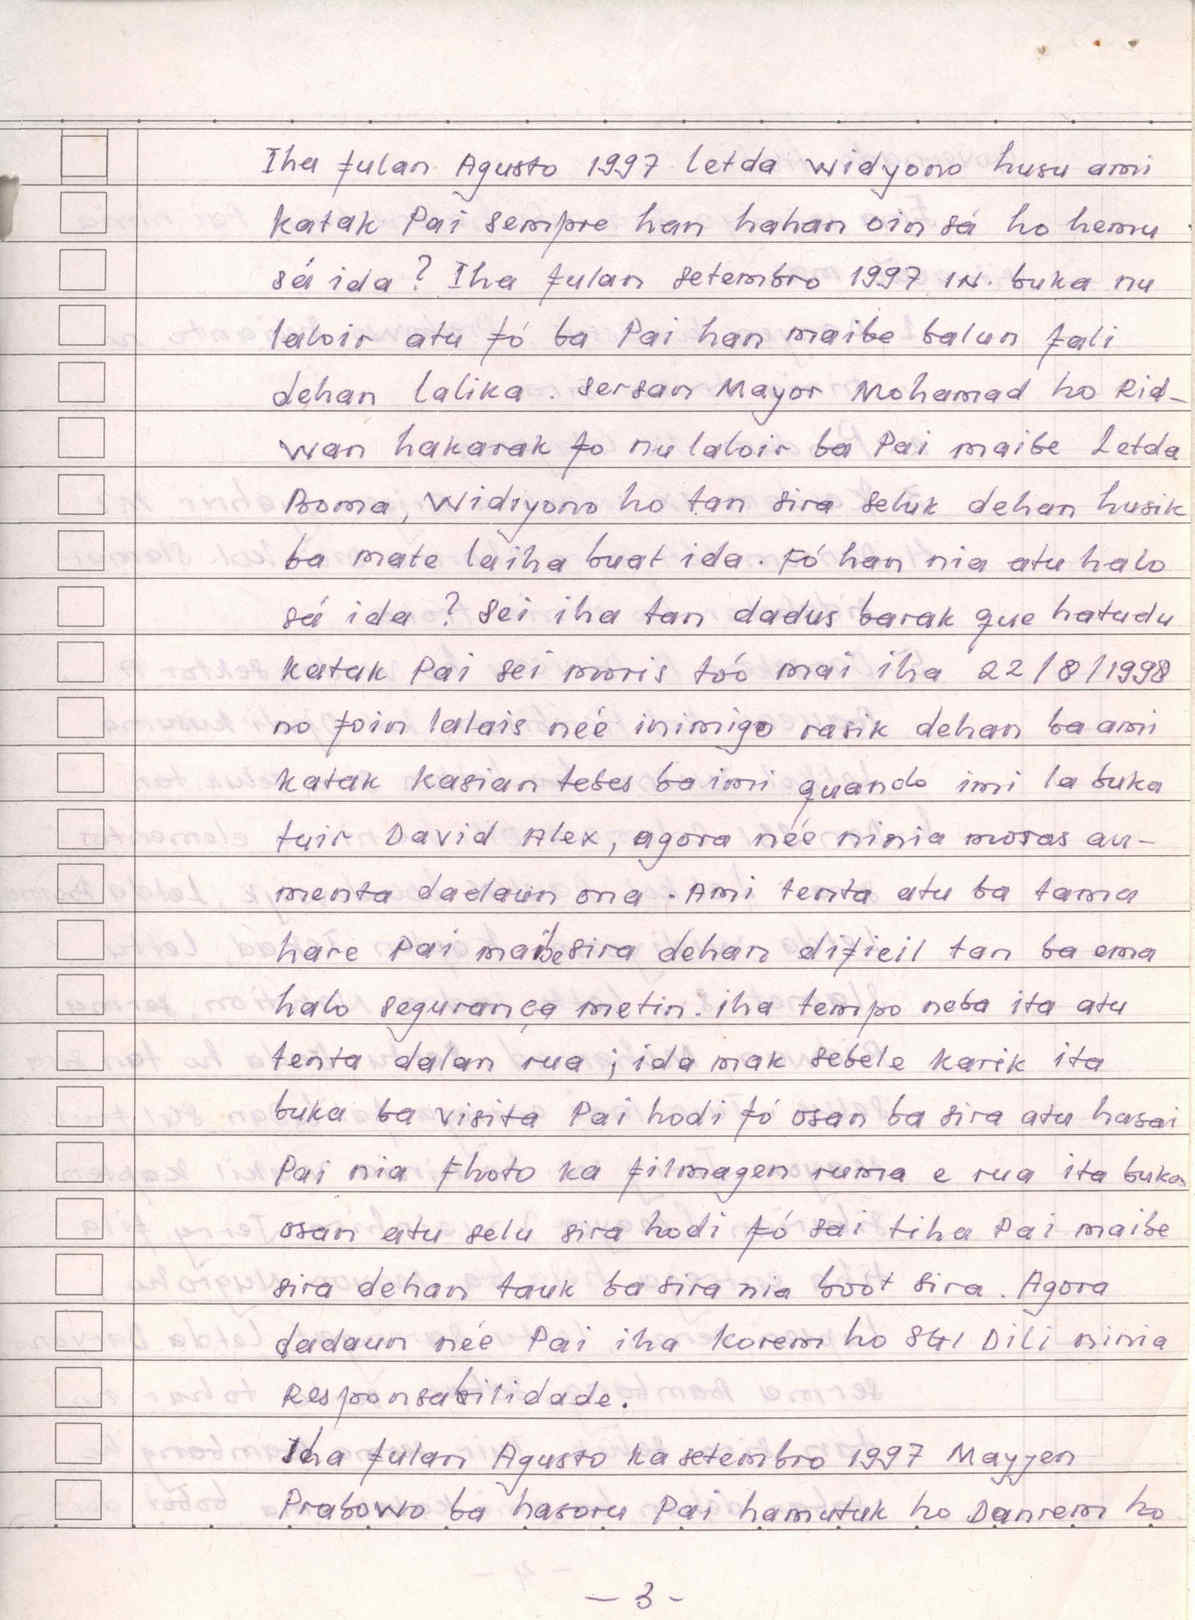 Iha fulan Agusto 1997 letda widyono husu ami
katak Pai sempre han hahan oin sá ho hemu
sá ida? Iha fulan setembro 1997 IN. buka nu
laloir atu fó ba Pai han maibe balun fali
dehan lalika. sersan Mayor Mohamad ho Rid-
wan hakarak fo nu laloir ba Pai maibe Letda
Boma, Widiyono ho tan sira seluk dehan husik
ba mate laiha buat ida. Fó han nia atu halo
sá ida? Sei iha tan dadus barak que hatudu
katak Pai sei moris tóo mai iha 22/8/1998
no foin lalais neé inimigo rasik dehan ba ami
katak kasian tebes ba imi quando imi la buka
tuir David Alex, agora neé ninia moras au-
menta dadaun ona. Ami tenta atu ba tama
hare Pai maibe sira dehan dificil tan ba ema
halo segurança metin. iha tempo neba ita atu
tenta dalan rua; ida mak sebele karik ita
buka ba visita Pai hodi fó osan ba sira atu hasai
Pai nia Fhoto ka filmagen ruma e rua ita buka
osan atu selu sira hodi fó sai tiha Pai maibe
sira dehan tauk ba sira nia boot sira. Agora
dadaun neé Pai iha Korem ho SGI Dili ninia
Responsabilidade.
Iha fulan Agusto ka setembro 1997 Mayjen
Prabowo ba hasoru Pai hamutuk ho Danrem ho
- 3 -